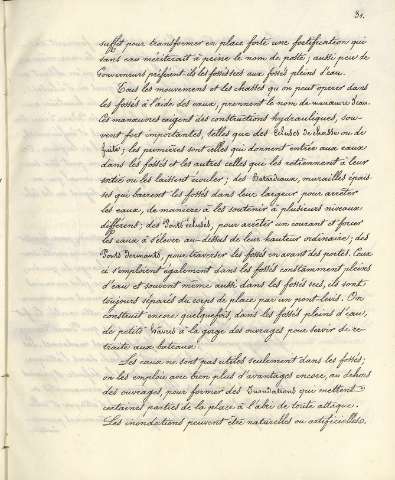 31.
suffit pour transformer en place forte une fortification qui
sans eau mériterait à peine le nom de poste; aussi peu de
Gouverneurs préfèrent-ils les fossés secs aux fossés pleins d'eau.
Tous les mouvements et les chasses qu'on peut opérer dans
les fossés à l'aide des eaux, prennent le nom de manœuvre d'eau.
Ces manœuvres exigent des constructions hydrauliques, sou-
vent fort importantes, telles que des Ecluses de chasse ou de
fuite; les premières sont celles qui donnent entrée aux eaux
dans les fossés et les autres celles que les retiennent à leur
sortie ou les laissent écouler; des Batardeaux, murailles épais-
ses qui barrent les fossés dans leur largeur pour arrêter
les eaux, de manière à les soutenir à plusieurs niveaux
différens; des Ponts éclusés, pour arrêter un courant et forcer
les eaux à s'élever au-dessus de leur hauteur ordinaire; des
Ponts dormants, pour traverser les fossés en avant des portes. Ceux
ci s'emploient également dans les fossés constamment pleins
d'eau et souvent même aussi dans les fossés secs, ils sont
toujours séparés du corps de place par un pont-levis. On
construit encore quelquefois, dans les fossés pleins d'eau,
de petits havres à la gorge des ouvrages pour servir de re-
traite aux bateaux.
Les eaux ne sont pas utiles seulement dans les fossés;
on les emploie avec bien plus d'avantages encore, au dehors
des ouvrages, pour former des Inondations qui mettent
certaines parties de la place à l'abri de toute attaque.
Les inondations peuvent être naturelles ou artificielles.